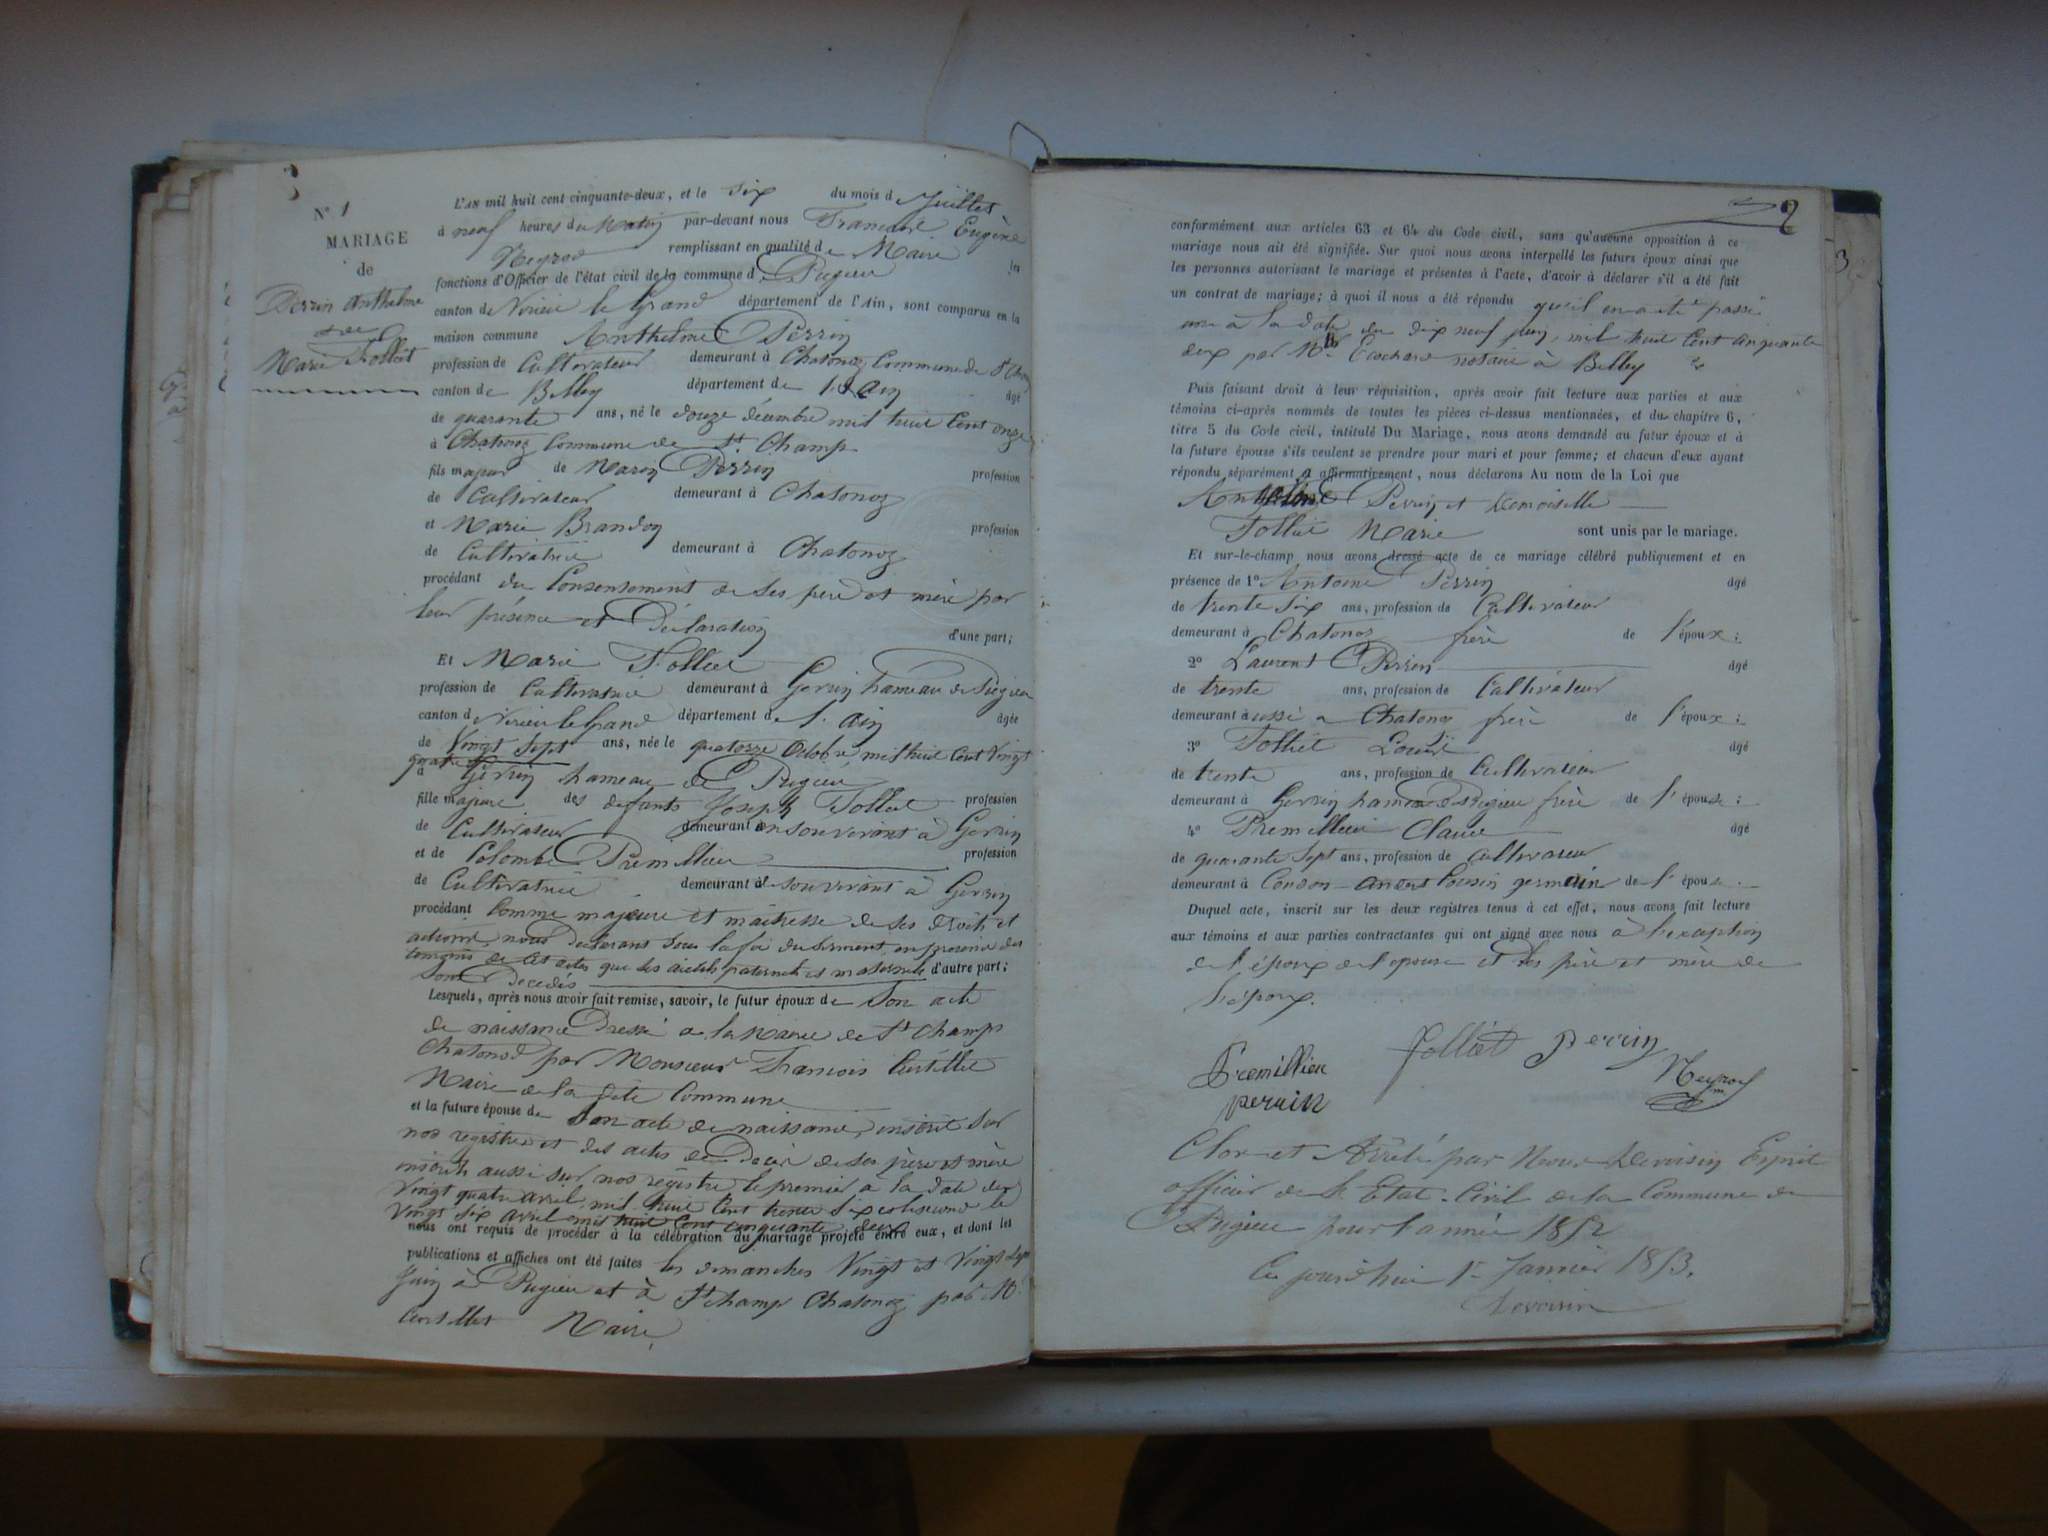 3
N° 1
MARIAGE
de
Perrin Anthelme
et de
Marie Folliet
L'AN mil huit cent cinquante-deux, et le six du mois d Juillet
à neuf heures du Matin par-devant nous Eugène
Neyrod remplissant en qualité de Maire les
fonctions d'Officier de l'état civil de la commune d Pugieu
canton de Virieu le Grand département de l'Ain, sont comparus en la
maison commune Anthelme Perrin
profession de Cultivateur demeurant à Chatonoz Commune de St Champ
canton de Belley département de l'Ain âgé
de quarante ans, né le douze décembre mil huit cent onze
à Chatonoz Commune de St Champ
fils majeur de Marin Perrin profession
de Cultivateur demeurant à Chatonoz
et Marie Brandon profession
de Cultivatrice demeurant à Chatonoz
procédant du Consentement de ses père et mère par
leur présence et Déclaration d'une part;
Et Marie Folliet
profession de Cultivatrice demeurant à hameau de Pugieu
canton d Virieu le Grand département de l'Ain âgée
de Vingt Sept ans, née le quatorze Octobre mil huit cent Vingt
quatre
à hameau de Pugieu
fille majeure des défunts Joseph Folliet profession
de Cultivateur demeurant en son vivant à
et de Colombe Premillieu profession
de Cultivatrice demeurant de son vivant à
procédant Comme majeure et maîtresse de ses droits et
actions, nous déclarant sous la foi du serment en présence des
témoins de cet acte que ses aïeuls paternels et maternels d'autre part;
sont Décédés
Lesquels, après nous avoir fait remise, savoir, le futur époux de Son acte
de naissance Dressé à la Mairie de St Champ
Chatonod par Monsieur François
Maire de la dite Commune
et la future épouse de Son acte de naissance, inscrit sur
nos registres et des actes de Décès de ses père et mère
inscrits aussi sur nos registre le premier à la date du
Vingt quatre avril mil huit cent trente six et le second le
Vingt six avril mil huit cent cinquante deux
nous ont requis de procéder à la célébration du mariage projeté entre eux, et dont les
publications et affiches ont été faites les dimanches Vingt et Vingt Sept
Juin à Pugieu et à St champ Chatonoz par M.
Maire
2
3
conformément aux articles 63 et 64 du Code civil, sans qu'aucune opposition à ce
mariage nous ait été signifiée. Sur quoi nous avons interpellé les futurs époux ainsi que
les personnes autorisant le mariage et présentes à l'acte, d'avoir à déclarer s'il a été fait
un contrat de mariage; à quoi il nous a été répondu qu'il en a été passé
un à la date du dix neuf juin, mil huit cent cinquante
deux par Me notaire à Belley
Puis faisant droit à leur réquisition, après avoir fait lecture aux parties et aux
témoins ci-après nommés de toutes les pièces ci-dessus mentionnées, et du chapitre 6,
titre 5 du Code civil, intitulé Du Mariage, nous avons demandé au futur époux et à
la future épouse s'ils veulent se prendre pour mari et pour femme; et chacun d'eux ayant
répondu séparément et affirmativement, nous déclarons Au nom de la Loi que
Anthelme Perrin et Demoiselle
Folliet Marie sont unis par le mariage.
Et sur-le-champ nous avons dressé acte de ce mariage célébré publiquement et en
présence de 1° Antoine Perrin âgé
de trente Six ans, profession de Cultivateur
demeurant à Chatonoz frère de l'époux;
2° Laurent Perrin âgé
de trente ans, profession de Cultivateur
demeurant aussi à Chatonoz frère de l'époux;
3° Folliet Louis âgé
de trente ans, profession de Cultivateur
demeurant à hameau de Pugieu frère de l'épouse;
4° Premillieu Claude âgé
de quarante Sept ans, profession de Cultivateur
demeurant à Cousin germain de l'épouse.
Duquel acte, inscrit sur les deux registres tenus à cet effet, nous avons fait lecture
aux témoins et aux parties contractantes qui ont signé avec nous à l'exception
de l'époux de l'épouse et des père et mère de
l'époux.
Premillieu Folliet Perrin Neyrod
perrin
Clos et Arrêté par Nous Devoisin Esprit
officier de l'Etat-Civil de la Commune de
Pugieu pour l'année 1852
Ce jourd'hui 1er Janvier 1853.
Devoisin